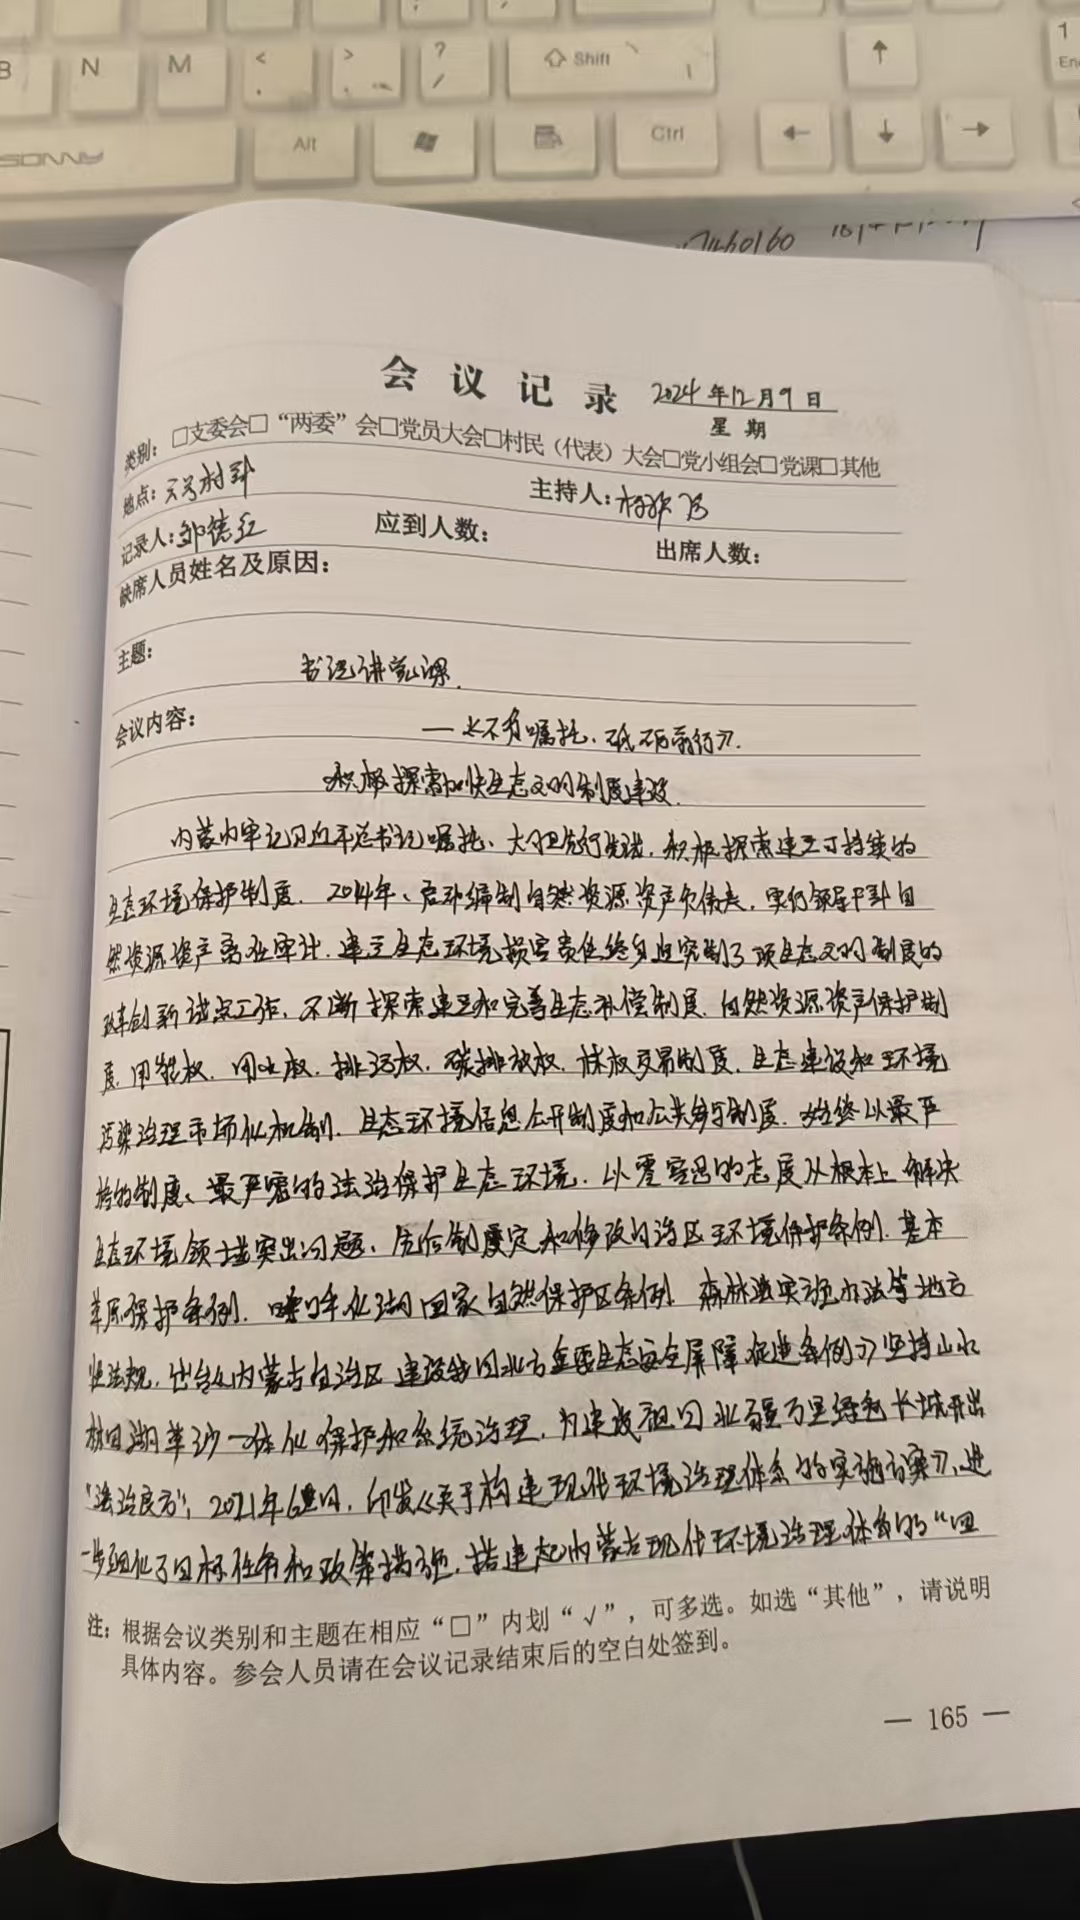 B N M < , > . ? / Shift ↑ 1 End
Alt Ctrl ← ↓ →
会议记录 2024年12月9日
星期
类别：□支委会□“两委”会□党员大会□村民（代表）大会□党小组会□党课□其他
地点： 主持人：
记录人：邹德红 应到人数： 出席人数：
缺席人员姓名及原因：
主题：
书记讲党课.
会议内容： —《不负嘱托、砥砺前行》.
积极探索加快生态文明制度建设.
内蒙古牢记习近平总书记嘱托、大胆先行先试，积极探索建立可持续的
生态环境保护制度. 2014年、启动编制自然资源资产负债表，实行领导干部自
然资源资产离任审计，建立生态环境损害责任终身追究制了项生态文明制度的
改革创新试点工作，不断探索建立和完善生态补偿制度、自然资源资产保护制
度、用能权、用水权、排污权、碳排放权、林权交易制度、生态建设和环境
污染治理市场化机制、生态环境信息公开制度和公共参与制度. 始终以最严
格的制度、最严密的法治保护生态环境，以零容忍的态度从根本上解决
生态环境领域突出问题、先后制度定和修改自治区环境保护条例、基本
草原保护条例、国家自然保护区条例、森林法实施办法等地方
性法规，出台《内蒙古自治区建设我国北方重要生态安全屏障促进条例》坚持山水
林田湖草沙一体化保护和系统治理，为建成祖国北疆万里绿色长城开出
“法治良方”；2021年6月，印发《关于构建现代环境治理体系的实施方案》、进
一步细化了目标任务和政策措施，搭建起内蒙古现代环境治理体系的“四
注：根据会议类别和主题在相应“□”内划“√”，可多选。如选“其他”，请说明
具体内容。参会人员请在会议记录结束后的空白处签到。
— 165 —